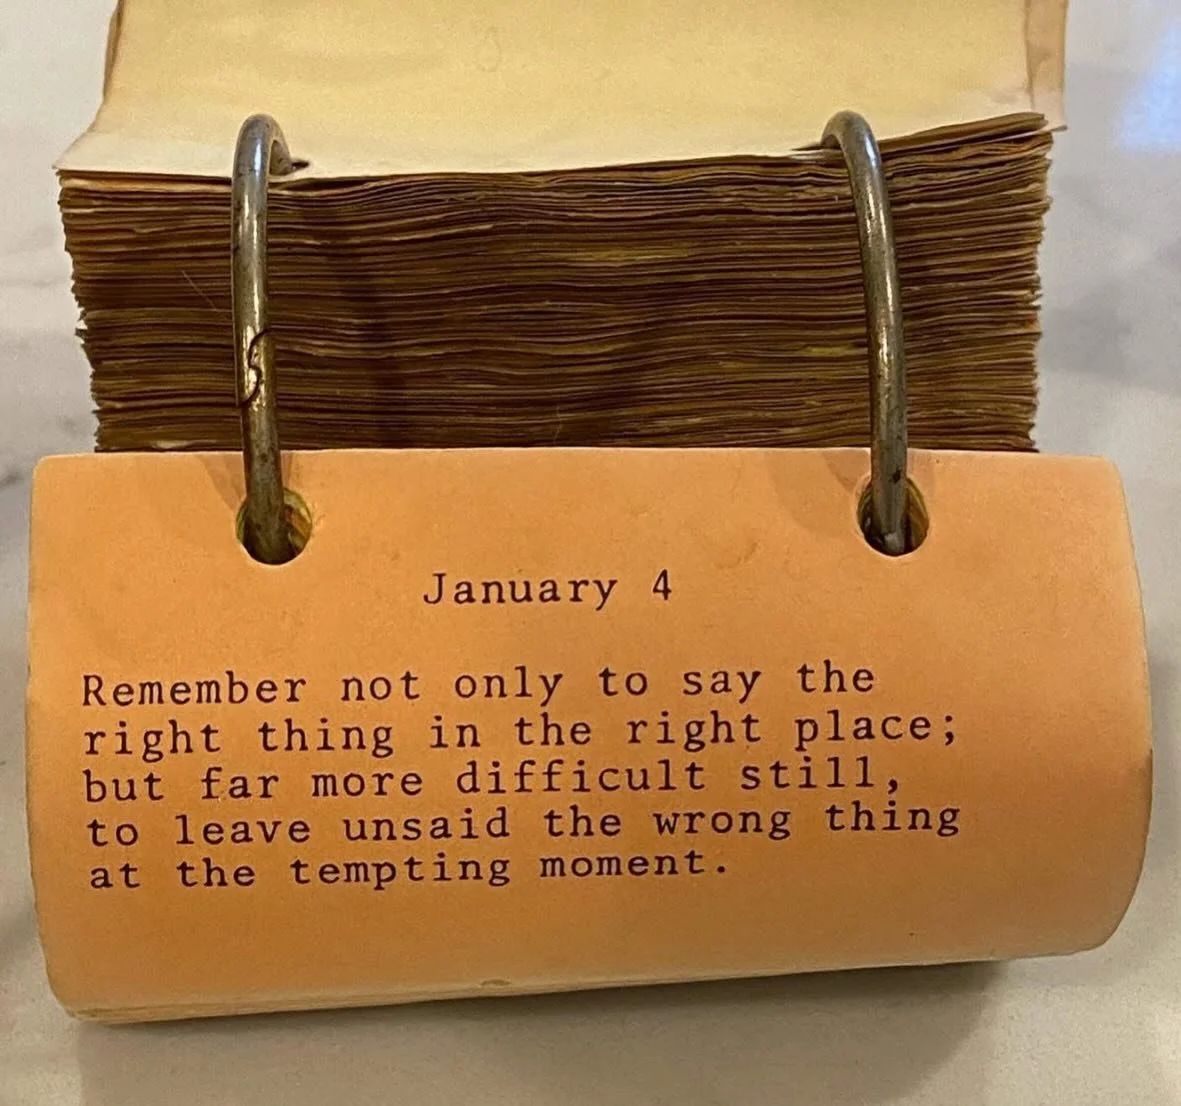 January 4
Remember not only to say the
right thing in the right place;
but far more difficult still,
to leave unsaid the wrong thing
at the tempting moment.